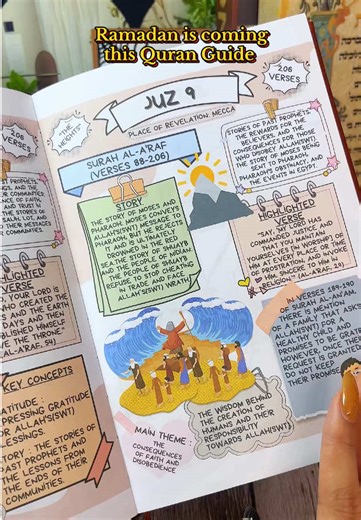 Ramadan is coming
this Quran Guide
"THE
HEIGHTS"
206
VERSES
PROPHETS,
NGS, AND THE
EIR COMMUNITIES
ANCE OF FAITH,
AND TRUST IN
THE STORIES OF
SALIH, LOT, AND
O THEIR MESSAGES
R COMMUNITIES.
HIGHLIGHTED
VERSE
YOUR LORD IS
WHO CREATED THE
AND THE EARTH
DAYS AND THEN
BLISHED HIMSELF
VE THE THRONE."
AL-A'RAF, 54)
KEY CONCEPTS
GRATITUDE :
EXPRESSING GRATITUDE
ALLAH(SWT)
BLESSINGS.
STORY : THE STORIES OF
PAST PROPHETS AND
THE LESSONS FROM
THE ENDS OF THEIR
COMMUNITIES.
JUZ 9
PLACE OF REVELATION: MECCA
SURAH AL-A'RAF
(VERSES 88-206)
STORY
THE STORY OF MOSES AND
PHARAOH. MOSES CONVEYS
ALLAH'S(SWT) MESSAGE TO
PHARAOH, BUT HE REJECTS
IT AND IS ULTIMATELY
DROWNED IN THE RED
SEA.THE STORY OF SHUAYB
AND THE PEOPLE OF MIDIAN.
THE PEOPLE OF SHUAYB
REFUSE TO STOP CHEATING
IN TRADE AND FACE
ALLAH'S(SWT) WRATH.
MAIN THEME :
THE
CONSEQUENCES
OF FAITH AND
DISOBEDIENCE
206
VERSES
STORIES OF PAST PROPHETS,
THE REWARDS FOR THE
BELIEVERS, AND THE
CONSEQUENCES FOR THOSE
WHO DISOBEY ALLAH(SWT).
THE STORY OF MOSES BEING
SENT TO PHARAOH,
PHARAOH'S OBSTINACY, AND
THE EVENTS IN EGYPT.
HIGHLIGHTED
VERSE
"SAY, 'MY LORD HAS
COMMANDED JUSTICE AND
THAT YOU MAINTAIN
YOURSELVES IN WORSHIP OF
HIM AT EVERY PLACE OR TIME
OF PROSTRATION, AND INVOKE
HIM, SINCERE TO HIM IN
RELIGION." (AL-A'RAF, 29)
IN VERSES 189-190
OF SURAH AL-AN'AM,
THERE IS MENTION
OF A FAMILY THAT ASKS
ALLAH(SWT) FOR A
HEALTHY CHILD AND
PROMISES TO BE GRATEFUL.
HOWEVER, ONCE THEIR
REQUEST IS GRANTED,
DO NOT KEEP
THEIR PROMISE
THE WISDOM BEHIND
THE CREATION OF
HUMANS AND THEIR
RESPONSIBILITY
TOWARDS ALLAH(SWT).